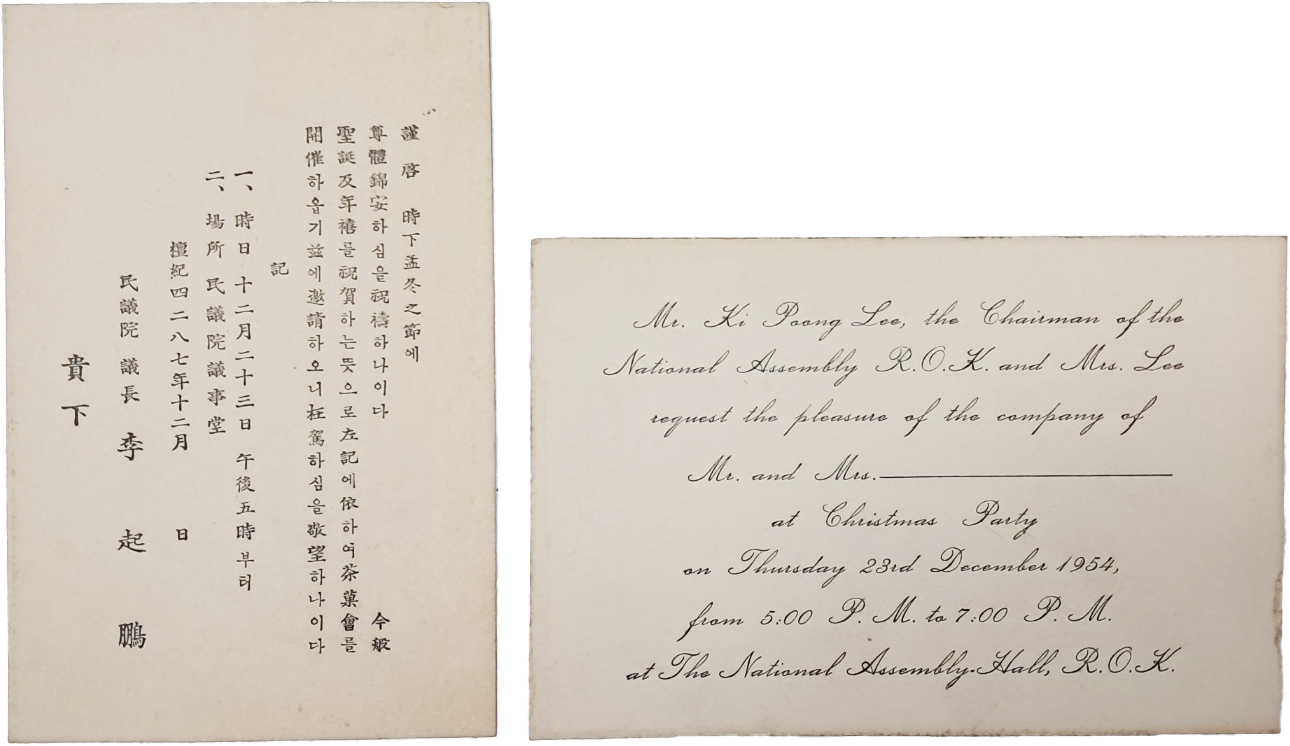 謹啓 時下孟冬之節에
尊體錦安하심을祝禱하나이다 今般
聖誕及年禧를祝賀하는뜻으로左記에依하여茶菓會를
開催하옵기玆에邀請하오니枉駕하심을敬望하나이다
記
一、時日 十二月二十三日 午後五時부터
二、場所 民議院議事堂
檀紀四二八七年十二月 日
民議院 議長 李起鵬
貴下
Mr. Ki Poong Lee, the Chairman of the
National Assembly R.O.K. and Mrs. Lee
request the pleasure of the company of
Mr. and Mrs.
at Christmas Party
on Thursday 23rd December 1954,
from 5:00 P. M. to 7:00 P. M.
at The National Assembly-Hall, R.O.K.